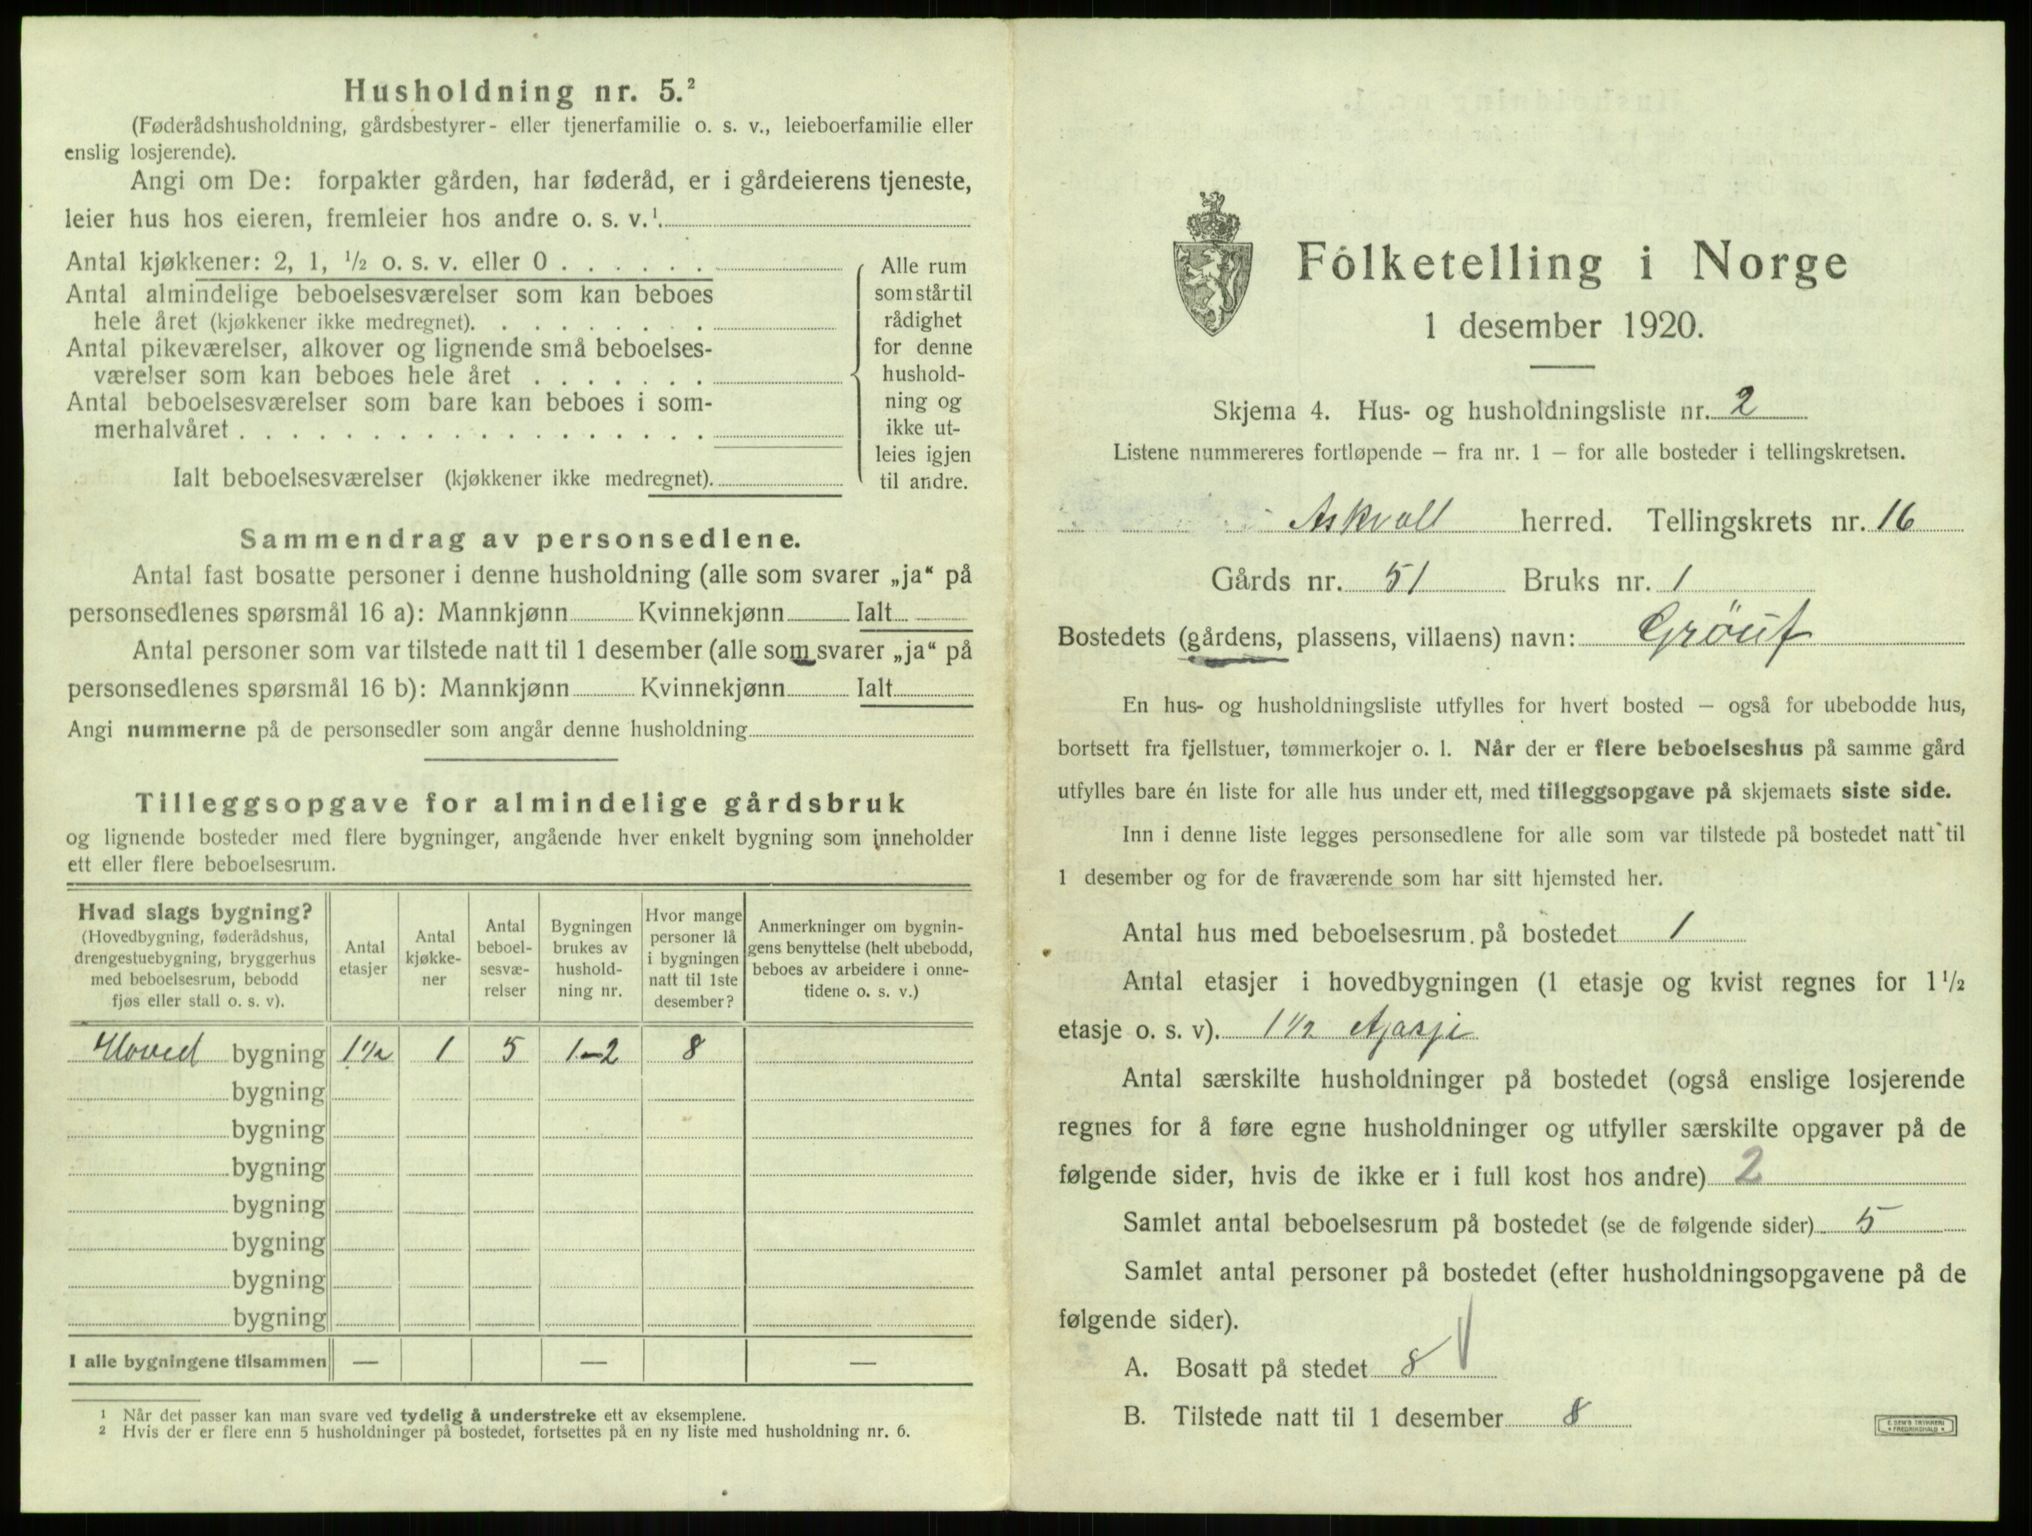 Husholdning nr. 5.²
(Føderådshusholdning, gårdsbestyrer- eller tjenerfamilie o. s. v., leieboerfamilie eller
enslig losjerende).
Angi om De: forpakter gården, har føderåd, er i gårdeierens tjeneste,
leier hus hos eieren, fremleier hos andre o. s. v.¹
Antal kjøkkener: 2, 1, ½ o. s. v. eller 0 . . . . . .
Antal almindelige beboelsesværelser som kan beboes
hele året (kjøkkener ikke medregnet). . . . . . . . .
Antal pikeværelser, alkover og lignende små beboelses-
værelser som kan beboes hele året . . . . . . .
Antal beboelsesværelser som bare kan beboes i som-
merhalvåret . . . . . . . . . . . . . . . . . .
Ialt beboelsesværelser (kjøkkener ikke medregnet).
Alle rum
som står til
rådighet
for denne
hushold-
ning og
ikke ut-
leies igjen
til andre.
Sammendrag av personsedlene.
Antal fast bosatte personer i denne husholdning (alle som svarer „ja“ på
personsedlenes spørsmål 16 a): Mannkjønn Kvinnekjønn Ialt
Antal personer som var tilstede natt til 1 desember (alle som svarer „ja“ på
personsedlenes spørsmål 16 b): Mannkjønn Kvinnekjønn Ialt
Angi nummerne på de personsedler som angår denne husholdning
Tilleggsopgave for almindelige gårdsbruk
og lignende bosteder med flere bygninger, angående hver enkelt bygning som inneholder
ett eller flere beboelsesrum.
Hvad slags bygning?
(Hovedbygning, føderådshus,
drengestuebygning, bryggerhus
med beboelsesrum, bebodd
fjøs eller stall o. s. v).
Antal
etasjer
Antal
kjøkke-
ner
Antal
beboel-
sesvæ-
relser
Bygningen
brukes av
hushold-
ning nr.
Hvor mange
personer lå
i bygningen
natt til 1ste
desember?
Anmerkninger om bygnin-
gens benyttelse (helt ubebodd,
beboes av arbeidere i onne-
tidene o. s. v.)
Hoved bygning 1½ 1 5 1-2 8
bygning
bygning
bygning
bygning
bygning
bygning
bygning
I alle bygningene tilsammen — — —
¹ Når det passer kan man svare ved tydelig å understreke ett av eksemplene.
² Hvis der er flere enn 5 husholdninger på bostedet, fortsettes på en ny liste med husholdning nr. 6.
Folketelling i Norge
1 desember 1920.
Skjema 4. Hus- og husholdningsliste nr. 2
Listene nummereres fortløpende – fra nr. 1 – for alle bosteder i tellingskretsen.
Askvoll herred. Tellingskrets nr. 16
Gårds nr. 51 Bruks nr. 1
Bostedets (gårdens, plassens, villaens) navn: Gröuf
En hus- og husholdningsliste utfylles for hvert bosted – også for ubebodde hus,
bortsett fra fjellstuer, tømmerkojer o. l. Når der er flere beboelseshus på samme gård
utfylles bare én liste for alle hus under ett, med tilleggsopgave på skjemaets siste side.
Inn i denne liste legges personsedlene for alle som var tilstede på bostedet natt til
1 desember og for de fraværende som har sitt hjemsted her.
Antal hus med beboelsesrum på bostedet 1
Antal etasjer i hovedbygningen (1 etasje og kvist regnes for 1½
etasje o. s. v). 1½ Atasje
Antal særskilte husholdninger på bostedet (også enslige losjerende
regnes for å føre egne husholdninger og utfyller særskilte opgaver på de
følgende sider, hvis de ikke er i full kost hos andre) 2
Samlet antal beboelsesrum på bostedet (se de følgende sider) 5
Samlet antal personer på bostedet (efter husholdningsopgavene på de
følgende sider).
A. Bosatt på stedet 8
B. Tilstede natt til 1 desember 8
E. SEM'S TRYKKERI
FREDRIKSHALD